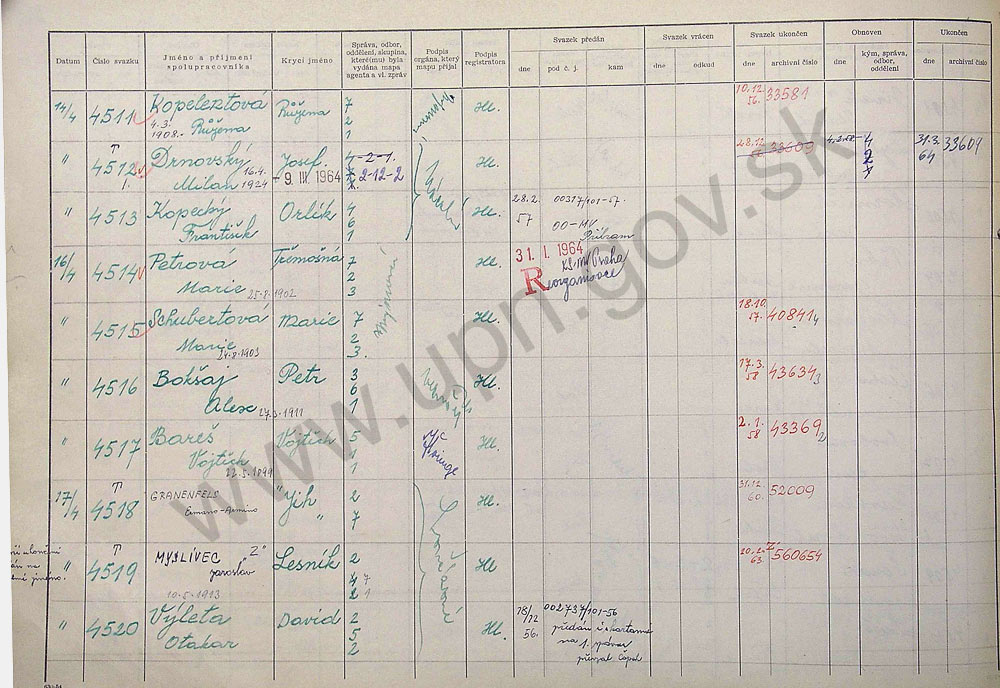 Datum
Číslo svazku
Jméno a příjmení
spolupracovníka
Krycí jméno
Správa, odbor,
oddělení, skupina,
které(mu) byla
vydána mapa
agenta a vl. zpráv
Podpis
orgána, který
mapu přijal
Podpis
registratora
Svazek předán
dne
pod č. j.
kam
Svazek vrácen
dne
odkud
Svazek ukončen
dne
archivní číslo
Obnoven
dne
kým, správa,
odbor,
oddělení
Ukončen
dne
archivní číslo
14/4 4511 Kopeleztová Růžena 7 Hl. 10.12. 33581
4.3. 2 56.
1908. Růžena 1
" 4512 Drnovský Josef. 4-2-1. Hl. 28.12. 33609 4 31.3. 33609
16.4. - 9. III. 1964 2-12-2 2 64
1. Milan 1924 7
" 4513 Kopecký Orlík 4 Hl. 28.2. 00317/101-57.
František 6 57 00-MV
1 Příbram
16/4 4514 Petrova Třemošná 7 Hl. 31. I. 1964
2 KS MV Praha
Marie 25.8.1902 3 Reorganisace
" 4515 Schubertova Marie 7 Hl. 18.10. 40841
2 57. 4
Marie 3.
24.8.1903
" 4516 Bokšaj Petr 3 Hl. 17.3. 43634
6 58 3
Alex 27.3.1911 1
" 4517 Bareš Vojtěch 5 Hl. 2.1. 43369
1 58 2
Vojtěch 1
22.5.1899
17/4 4518 GRANENFELS "Jih 2 Hl. 31.12. 52009
Ermano-Armino " 7 60.
" 4519 MYSLIVEC "Z" Lesník 2 Hl. 20.2. Z-560654
Jaroslav 4 7 63.
10.5.1913 2 1
" 4520 Výleta David 2 Hl. 18/12 002737/101-56
Otakar 5 56. předán
2 na 1. správu
převzal
www.upn.gov.sk